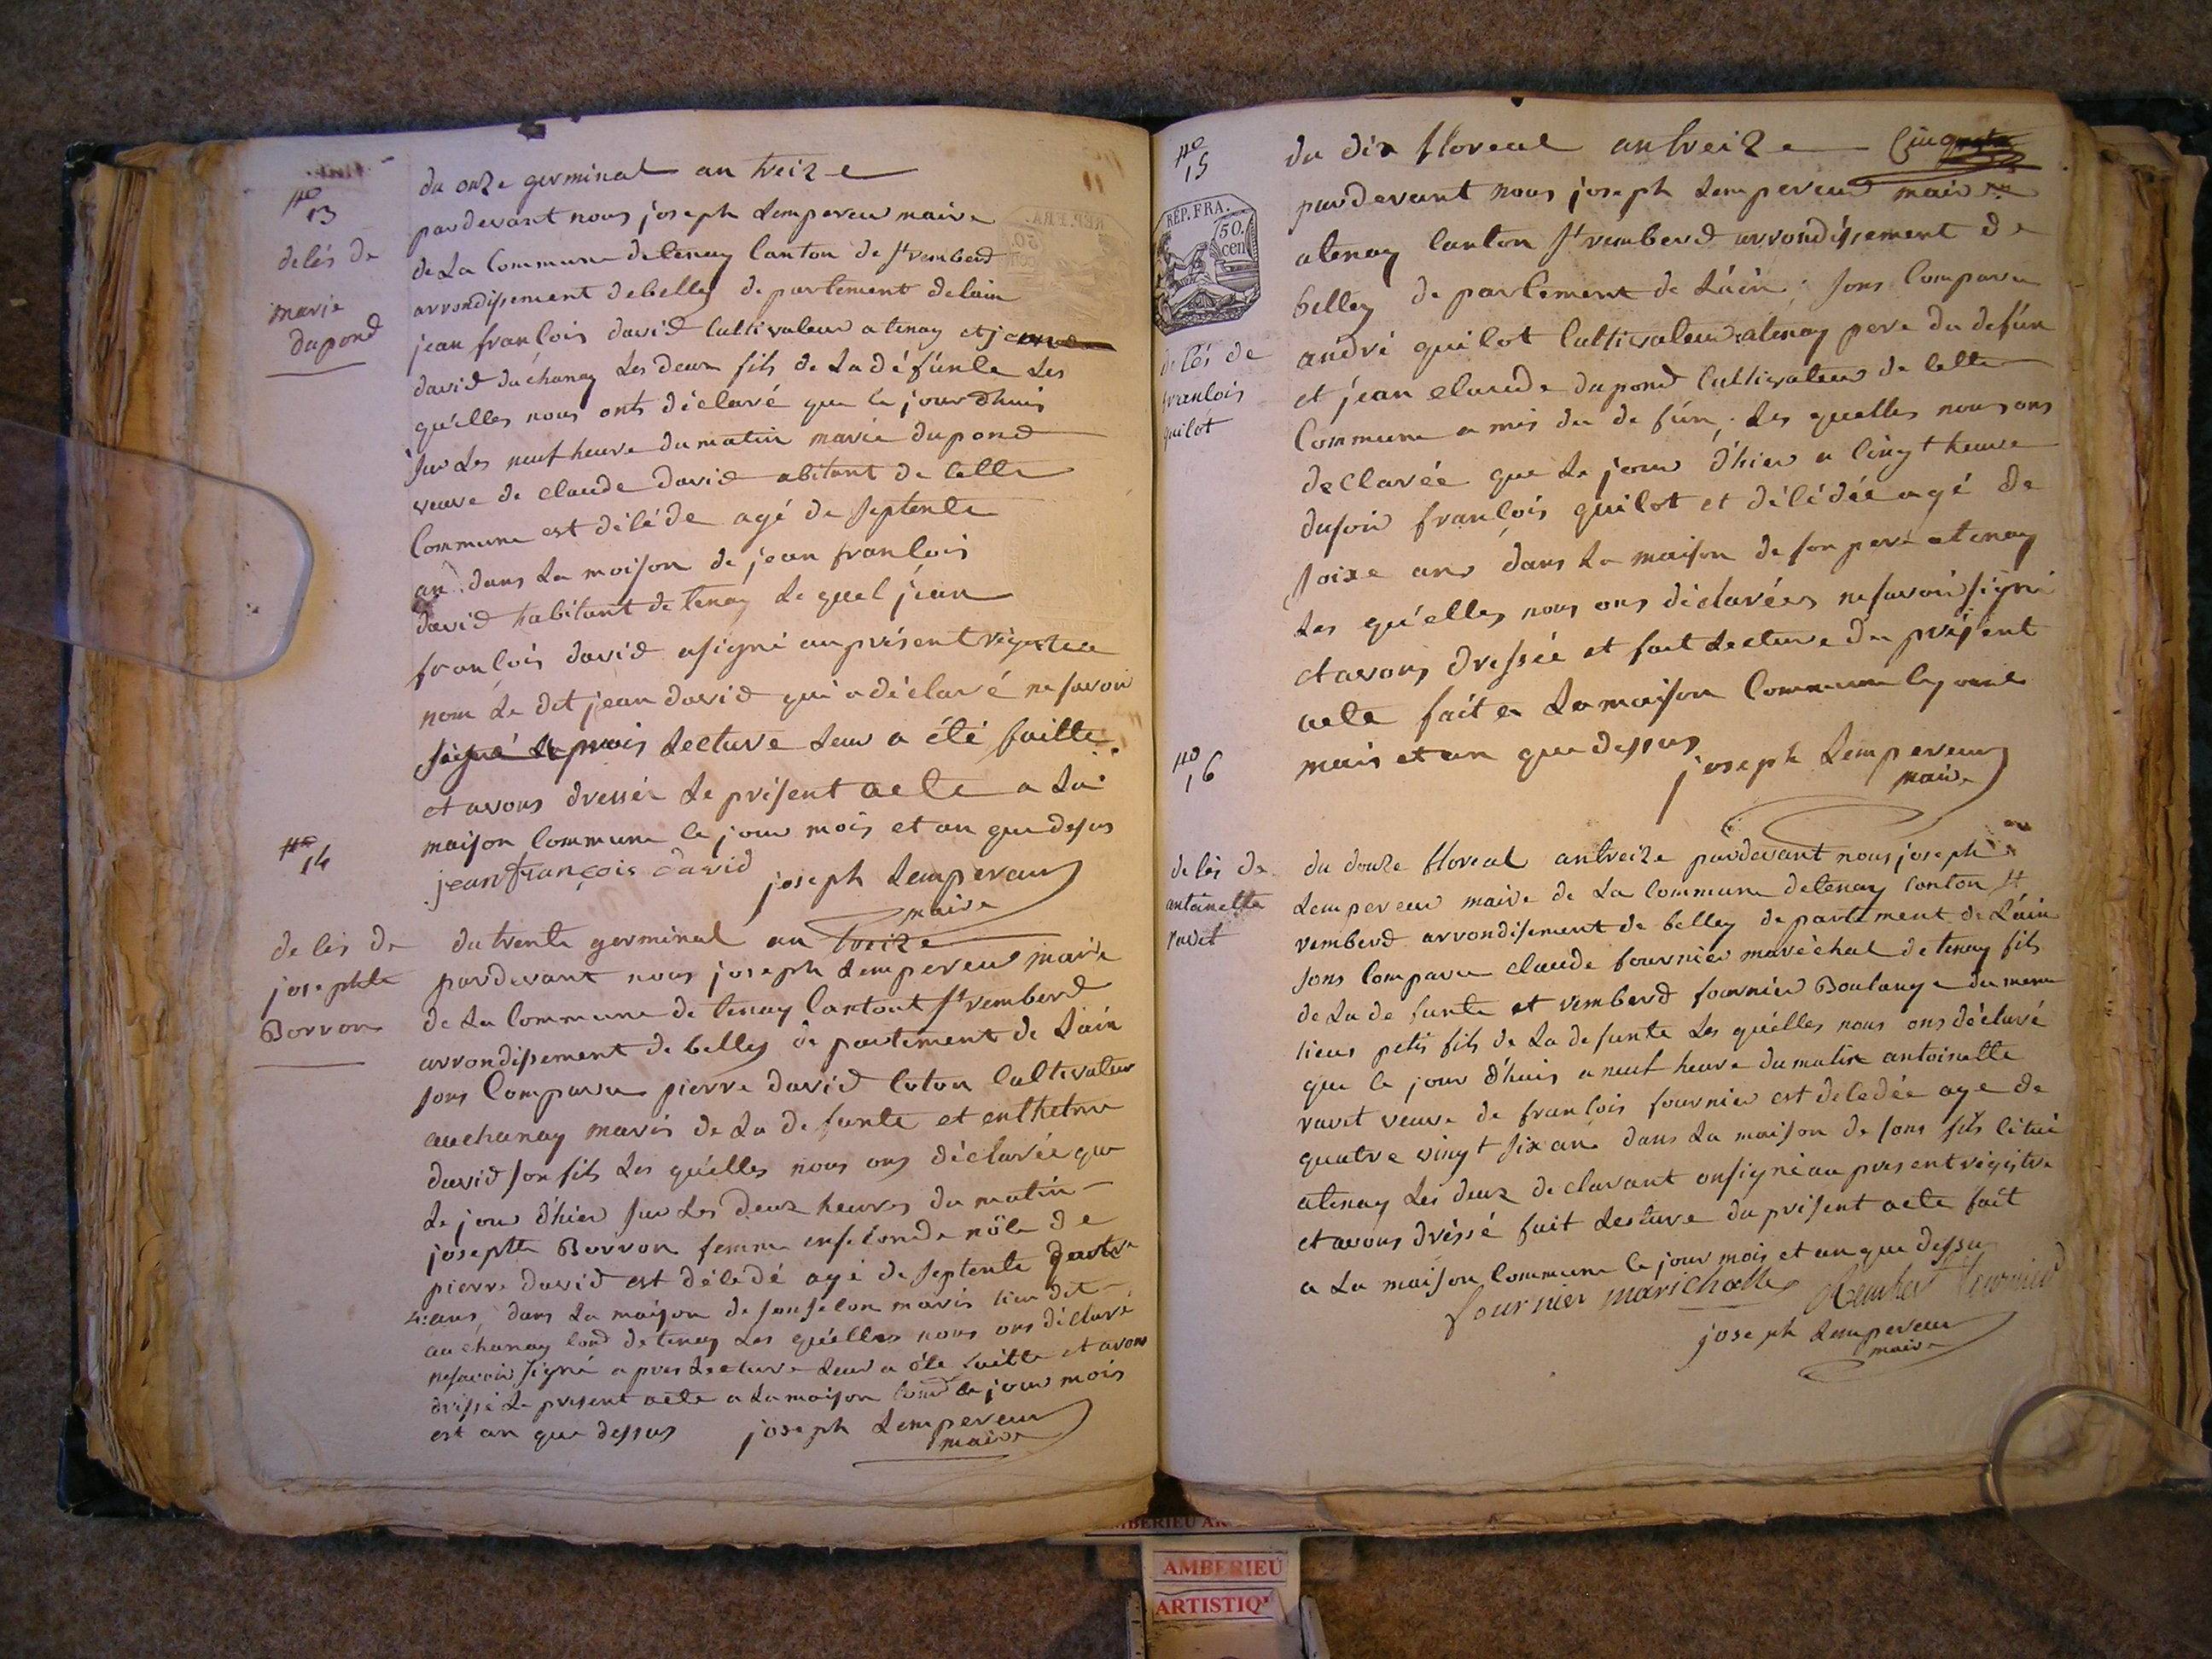 no
13
delés de
marie
dupond
du onze germinal an treize
pardevant nous joseph Lempereur maire
de La Commune detenay Canton de St rembend
arrondissement debelley de partement delain
jean francois david Cultivateur a tenay et
david du chanay Les deux fils de La dé funte Les
qu'elles nous onts déclaré que le jourdhuis
sur Les neuf heure du matin marie dupond
veuve de claude david abitant de cette
Commune est décéde agé de septente
an dans La maison de jean francois
david habitant de tenay Le quel jean
francois david a signé au présent régistre
nom Le dit jean david qui a déclaré ne savoir
signé Lecture Leur a été faitte
et avons dressér Le présent acte a La
maison Commune le jour mois et an que desus
jean françois david joseph Lempereur
maire
no
14
delés de
josephte
Borron
du trente germinal an treize
pardevant nous joseph Lempereur maire
de La Commune de tenay Cantont St remberd
arrondissement de belley de partement de Lain
sons Comparu pierre david Cultivateur
auchanay maris de La de funte et
david son fils Les qu'elles nous ons déclarée que
Le jour d'hier sur Les deux heures du matin
josephte Borron femme en seconde nôce de
pierre david est décédé agé de septente
4: ans, dans La maison de son selon maris lieu dit
au chanay de tenay Les qu'elles nous ons déclaré
ne savoir signé a pres Lecture Leur a éte faitte et avons
dréssé Le present acte a La maison Comd le jour mois
est an que dessus joseph Lempereur
maire
no
15
REP. FRA.
50.
cen
delés de
francois
guilot
du dix floreal an treize
pardevant nous joseph Lempereur maire
atenay Canton St remberd arrondissement de
belley de partement de Láin; sons Comparu
andré guilot Cultivateur atenay pere du defún
et jean claude dupond Cultivateur de cette
Commune a mis du de fún, Les quelles nous ons
declarée que Le jour d'hier a cinqt heure
du soir francois guilot et décédée agé de
seize ans dans La maison de son pere atenay
Les qu'elles nous ons déclarées ne savoir signé
et avons dressée et fait Lecture du présent
acte fait a La maison Commune
mois et an que dessus
joseph Lempereur
maire
no
16
delés de
antoinette
ravet
du douze floreal an treize pardevant nous joseph
Lempereur maire de La Commune detenay Conton St
remberd arrondisement de belley de partement de Láin
sons Comparu claude fournier maréchal de tenay fils
de La de funte et remberd fournier Boulange du meme
lieus petis fils de La defunte Les qu'elles nous ons déclaré
que le jour d'huis a neuf heure du matin antoinette
ravet veuve de francois fournier est décedée age de
quatre vingt six an dans La maison de sons fils citué
atenay Les deux declarant on signé au present régistre
et avons dréssé fait Lecture du présent acte fait
a La maison Commune le jour mois et an que dessu
fournier marichalle Rembert fournier
joseph Lempereur
maire
AMBERIEU
AMBERIEU
ARTISTIQ